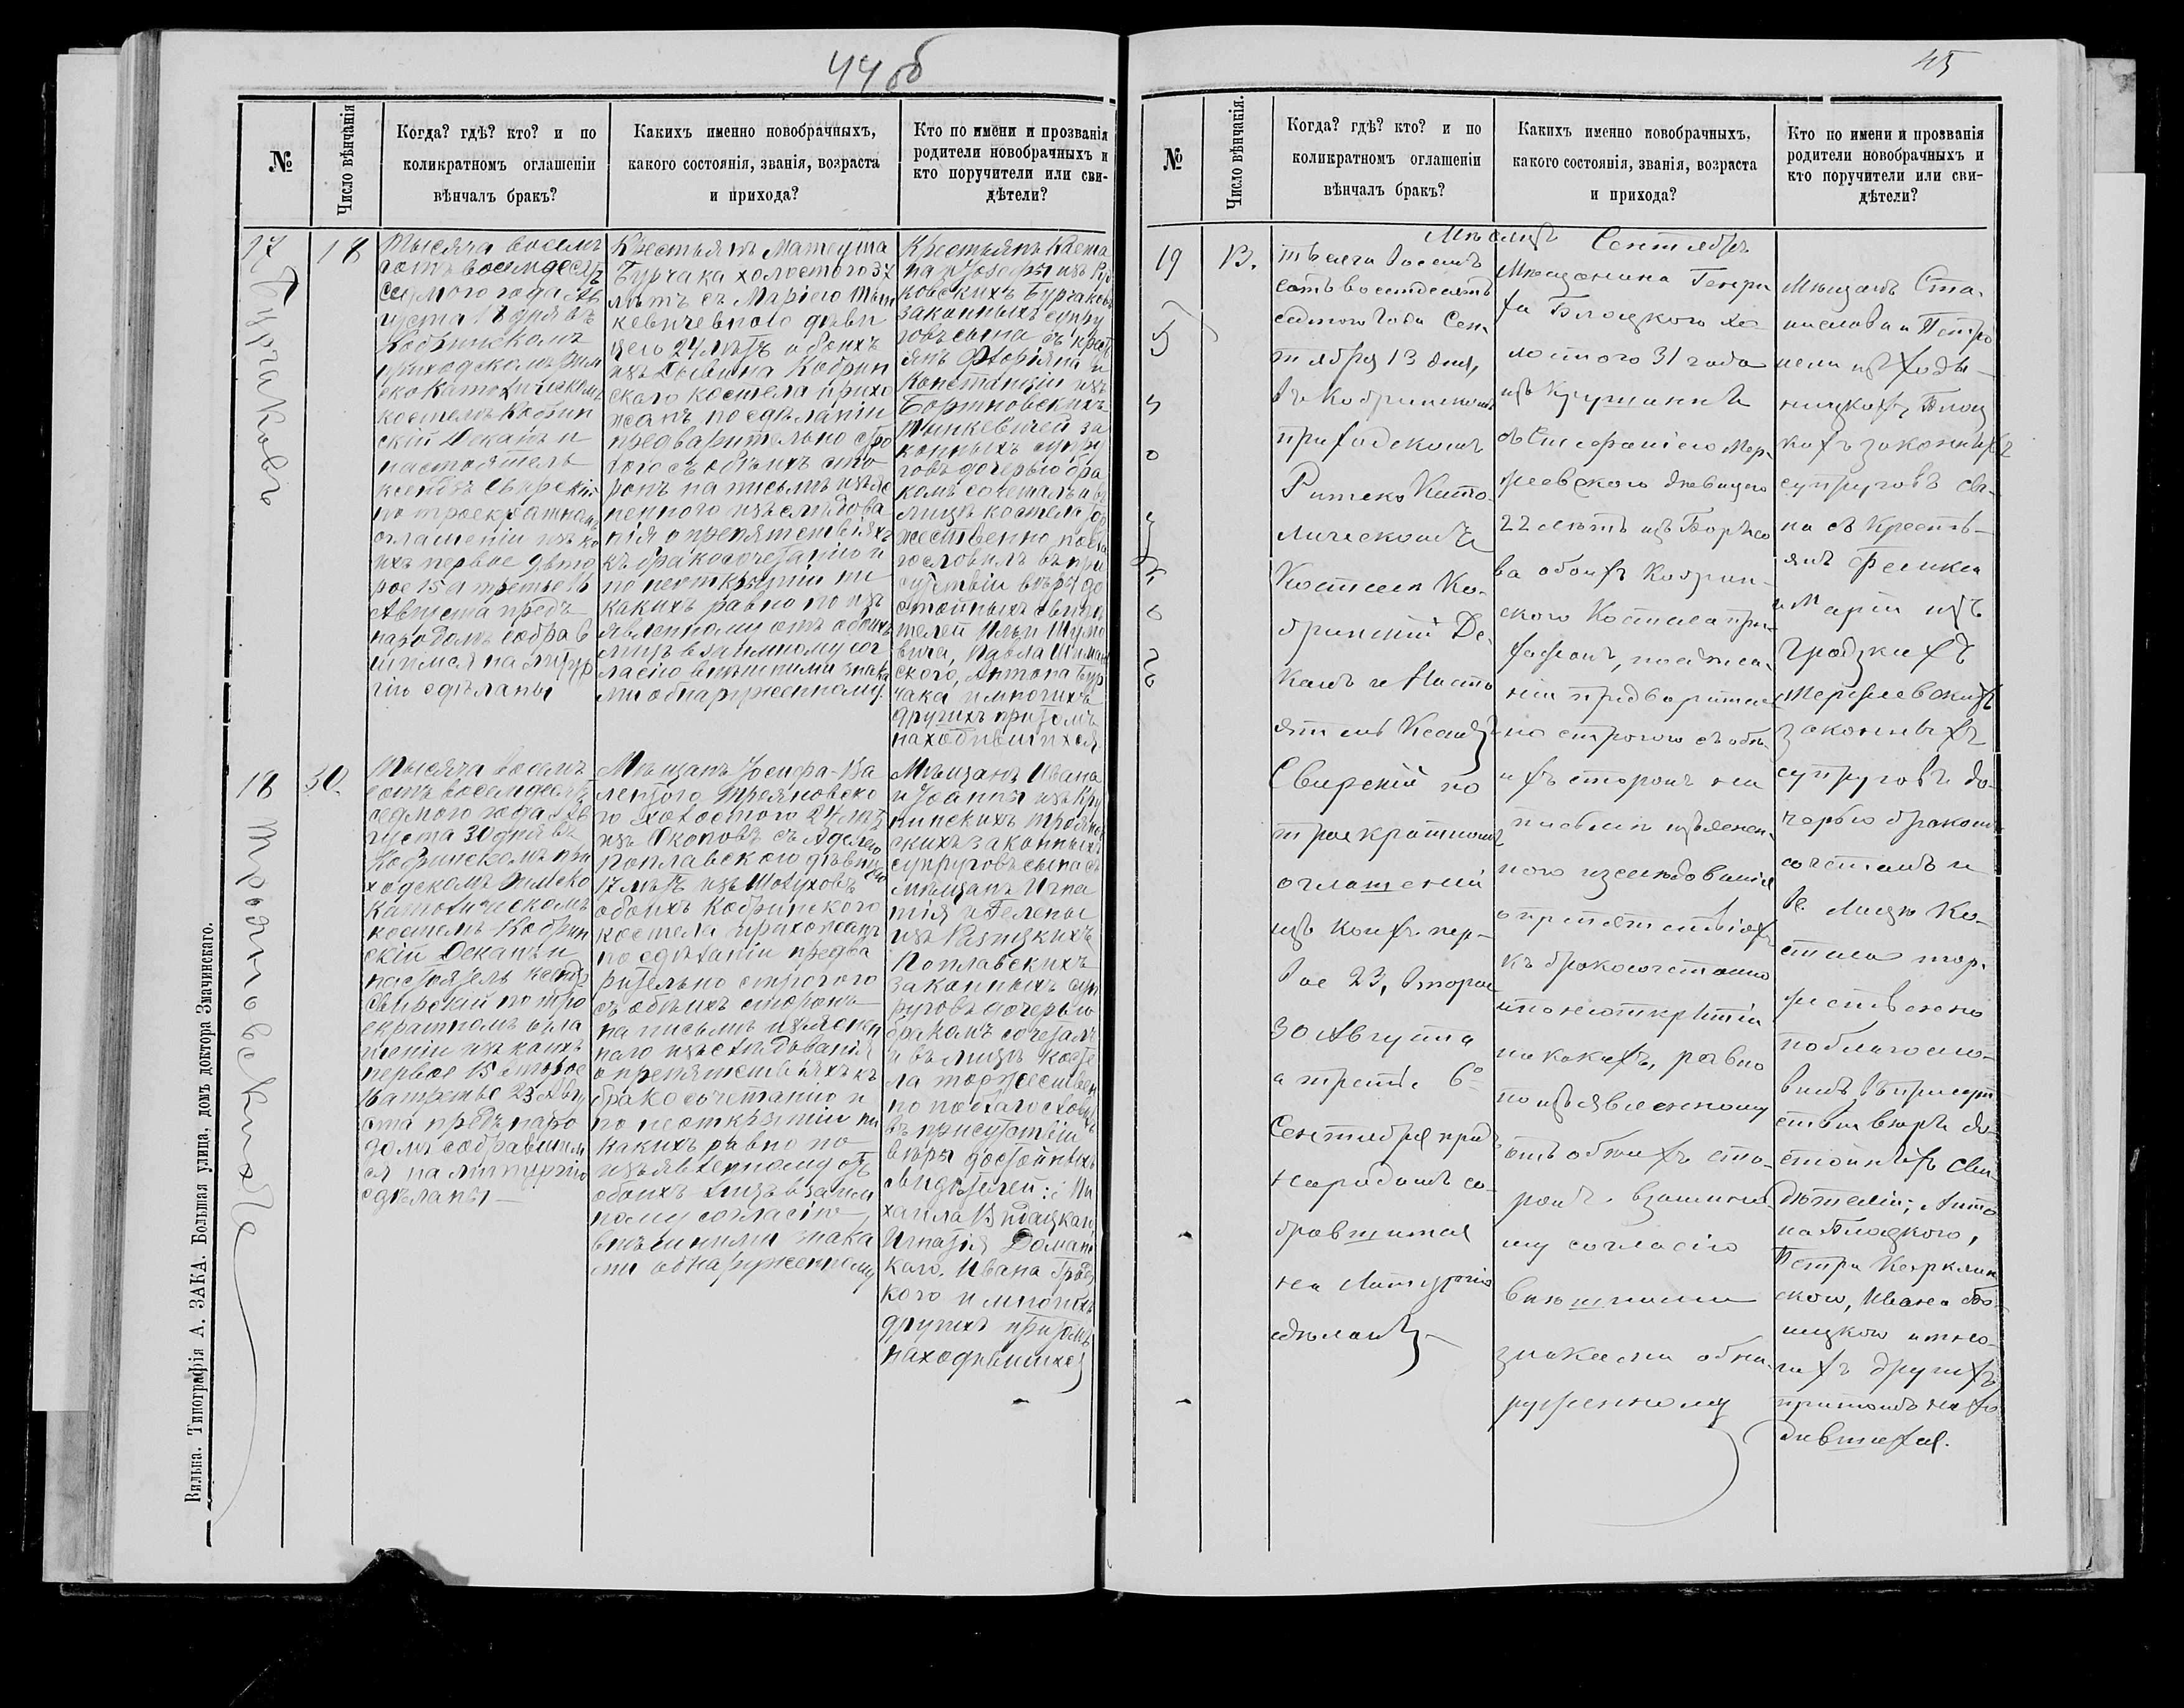 44 об
№
Число вѣнчанія
Когда? гдѣ? кто? и по
коликратномъ оглашеніи
вѣнчалъ бракъ?
Какихъ именно новобрачныхъ,
какого состоянія, званія, возраста
и прихода?
Кто по имени и прозванія
родители новобрачныхъ и
кто поручители или сви-
дѣтели?
17
Бурчаковъ
18
Тысяча восемь
сотъ восемдесятъ
седмого года Ав
густа 18 дня въ
Кобринскомъ
приходскомъ Рим
ско Католическомъ
костелѣ Кобрин
скій Деканъ и
настоятель
ксендзъ Свирскій
по троекратномъ
оглашеніи изъ ко
ихъ первое 9 вто
рое 15 а третье 16
Августа предъ
народомъ собрав
шимся на литур
гію сдѣланы
Крестьянъ Матеуша
Бурчака холостого 37
лѣтъ съ Маріею Тыш
кевичевною дѣви
цею 24 лѣтъ обоихъ
изъ Дывина Кобрин
скаго костела прихо
жанъ по сдѣланіи
предварительно стро
гого съ обѣихъ сто
ронъ на письмѣ изъяс
ненного изъслѣдова
нія о препятствіяхъ
къ бракосочетанію и
по неоткрытіи ни
какихъ равно по изъ
явленному отъ обоихъ
лицъ взаимному сог
ласію внѣшними знака
ми обнаруженному
Крестьянъ Каета
на и Іозефы изъ
ковскихъ Бурчаковъ
законныхъ супру
говъ сына съ крест
янъ Флоріяна и
Констанціи изъ
Бортновскихъ
Тышкевичей за
конныхъ супру
говъ дочерью бра
комъ сочеталъ и въ
лицѣ костела тор
жественно побла
гословилъ въ при
сутствіи вѣры до
стойныхъ свидѣ
телей Ильи Шумо
вича, Павла
ского, Антона Бур
чака и многихъ
другихъ притомъ
находившихся
18
Трояновскихъ
30.
Тысяча восемь
сотъ восемдесятъ
седмого года Ав
густа 30 дня въ
Кобринскомъ при
ходскомъ Римско
Католическомъ
костелѣ Кобрин
скій Деканъ и
настоятель ксендзъ
Свирскій по тро
екратномъ огла
шеніи изъ коихъ
первое 15 второе
16 а третье 23 Авгу
ста предъ наро
домъ собравшим
ся на литургію
сдѣланы —
Мѣщанъ Іосифа-Ва
лентого Трояновско
го холостого 24 лѣтъ
изъ Окоповъ съ Аделею
Поплавскою дѣвицею
17 лѣтъ изъ Шолуховъ
обоихъ Кобринского
костела прихожанъ
по сдѣланіи предва
рительно строгого
съ обѣихъ сторонъ
на письмѣ изъяснен
наго изъслѣдованія
о препятствіяхъ къ
бракосочетанію и
по неоткрытіи ни
какихъ равно по
изъявленному отъ
обоихъ лицъ взаим
ному согласію
внѣшними знака
ми обнаруженному
Мѣщанъ Ивана
и Іоанны изъ Кру
пинскихъ Трояно
скихъ законныхъ
супруговъ сына съ
мѣщанъ Игна
тія и Гелены
изъ
Поплавскихъ
законныхъ суп
руговъ дочерью
бракомъ сочеталъ
и въ лицѣ косте
ла торжествен
но поблагословилъ
въ присутствіи
вѣры достойныхъ
свидѣтелей: Ми
хаила
Игнатія Доман
каго, Ивана Грод
кого и многихъ
другихъ притомъ
находившихся
Вильна. Типографія А. ЗАКА. Большая улица, домъ доктора Змачинскаго.
45
№
Число вѣнчанія.
Когда? гдѣ? кто? и по
коликратномъ оглашеніи
вѣнчалъ бракъ?
Какихъ именно новобрачныхъ,
какого состоянія, званія, возраста
и прихода?
Кто по имени и прозванія
родители новобрачныхъ и
кто поручители или сви-
дѣтели?
Мѣсяцъ Сентябрь
19
13.
тысяча восемь
сотъ восемдесятъ
седмого Года Сен
тября 13 дня,
въ Кобринскомъ
приходскомъ
Римско Като-
лическомъ
Костелѣ Ко-
бринскій Де-
канъ и Насто
ятель Ксендзъ
Свирскій по
троекратномъ
оглашеніи
изъ коихъ пер-
вое 23, второе
30 Августа
а третіе 6º
Сентября предъ
народомъ со-
бравшимся
на Литургію
сдѣланы —
Мѣщанина Генри
ха Блоцкого хо-
лостого 31 года
изъ
съ Стефаніею Мер-
жеевскою дѣвицею
22 лѣтъ изъ
ва обоихъ Кобрин-
ского Костела при-
хожанъ, по сдѣла-
ніи предварител
но строгого съ обѣ-
ихъ сторонъ на
письмѣ изъяснен-
ного изслѣдованія
о препятствіяхъ
къ бракосочетанію
и по неоткрытіи
никакихъ, равно
по изъявленному
отъ обѣихъ сто-
ронъ взаимно
му согласію
внѣшними
знаками обна-
руженному
Мѣщанъ Ста-
нислава и Петро
нели изъ Ходы-
ницкихъ Блоц
кихъ законныхъ
супруговъ сы-
на съ Крестъ-
янъ Феликса
и Маріи изъ
Гродзкихъ
Мержеевскихъ
законныхъ
супруговъ до-
черью бракомъ
сочеталъ и
в. лицѣ Ко-
стела тор-
жественно
поблагосло-
вилъ въ присут
ствіи вѣры до-
стойныхъ сви-
дѣтелей; Анто
на Блоцкого,
Петра
ского, Ивана
ницкого и мно-
гихъ другихъ
притомъ нахо
дившихся.